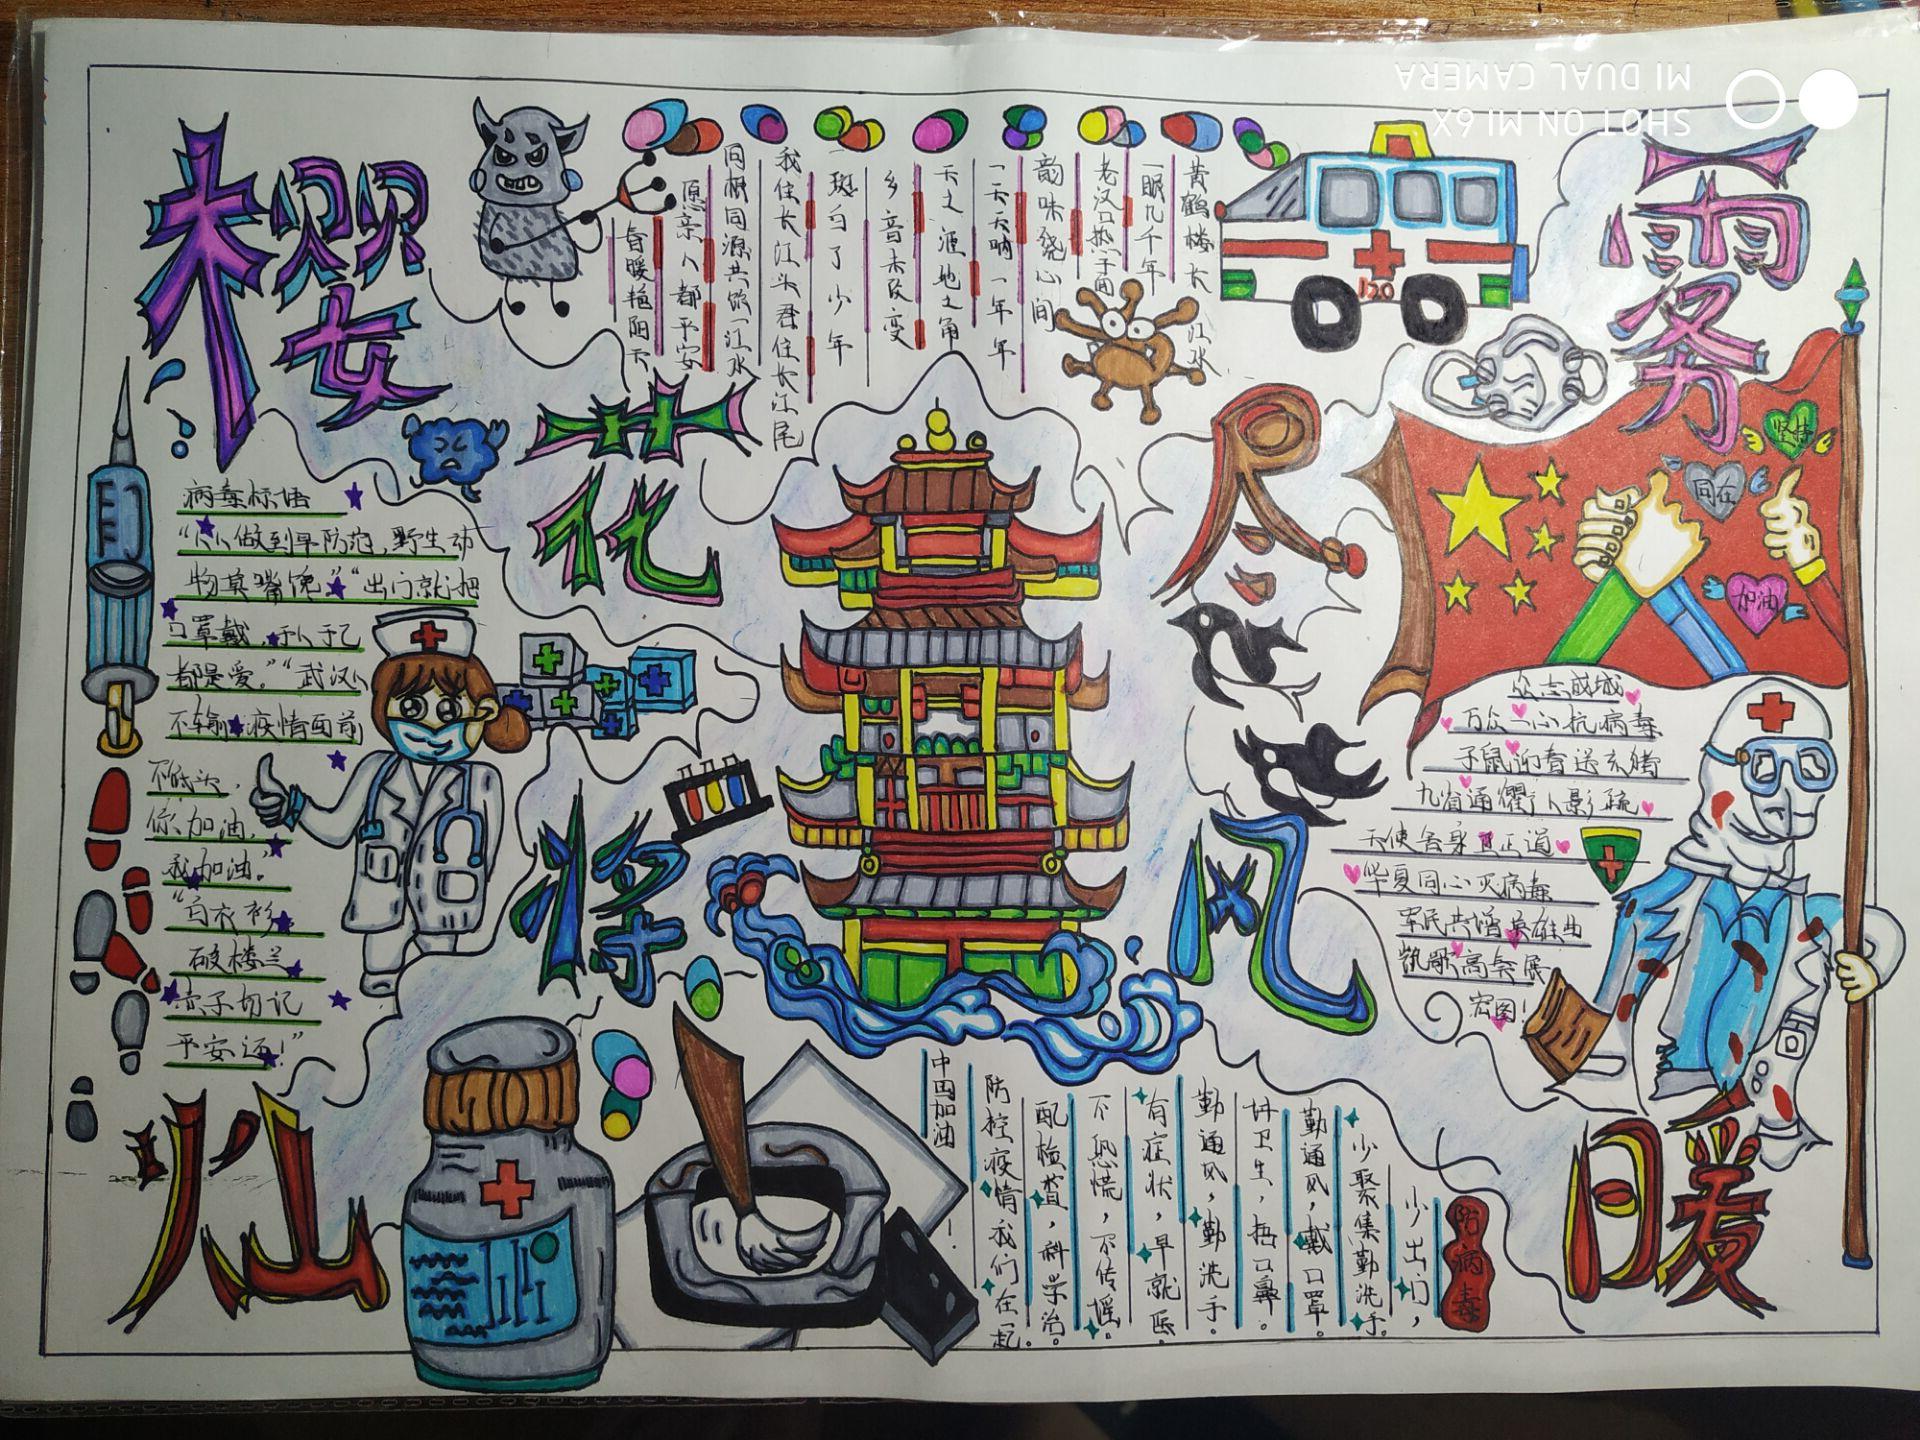 樱花将灿
雾尺风暖
SHOT ON MI 6X
MI DUAL CAMERA
黄鹤楼长江水
一眼几千年
老汉口热干面
韵味绕心间
一天天呐一年年
天之涯地之角
乡音未改变
一斑白了少年
我住长江头君住长江尾
同根同源共饮一江水
愿亲人都平安
春暖艳阳天
120
病毒标语
“人人做到早防范,野生动
物莫嘴馋”“出门就把
口罩戴,于人于己
都是爱。”“武汉人
不输,疫情面前
不低头,
你加油,
我加油。”
“白衣衫
破楼兰
赤子切记
平安还!”
坚持
同在
加油
众志成城
万众一心抗病毒
子鼠迎春送亥猪
九省通衢人影疏
天使舍身卫正道
华夏同心灭病毒
军民共谱英雄曲
凯歌高奏展
宏图!
防病毒
少出门,
少聚集勤洗手。
勤通风,戴口罩。
讲卫生,捂口鼻。
勤通风,勤洗手。
有症状,早就医。
不恐慌,不传谣。
配检查,科学治。
防控疫情我们在一起
中国加油!